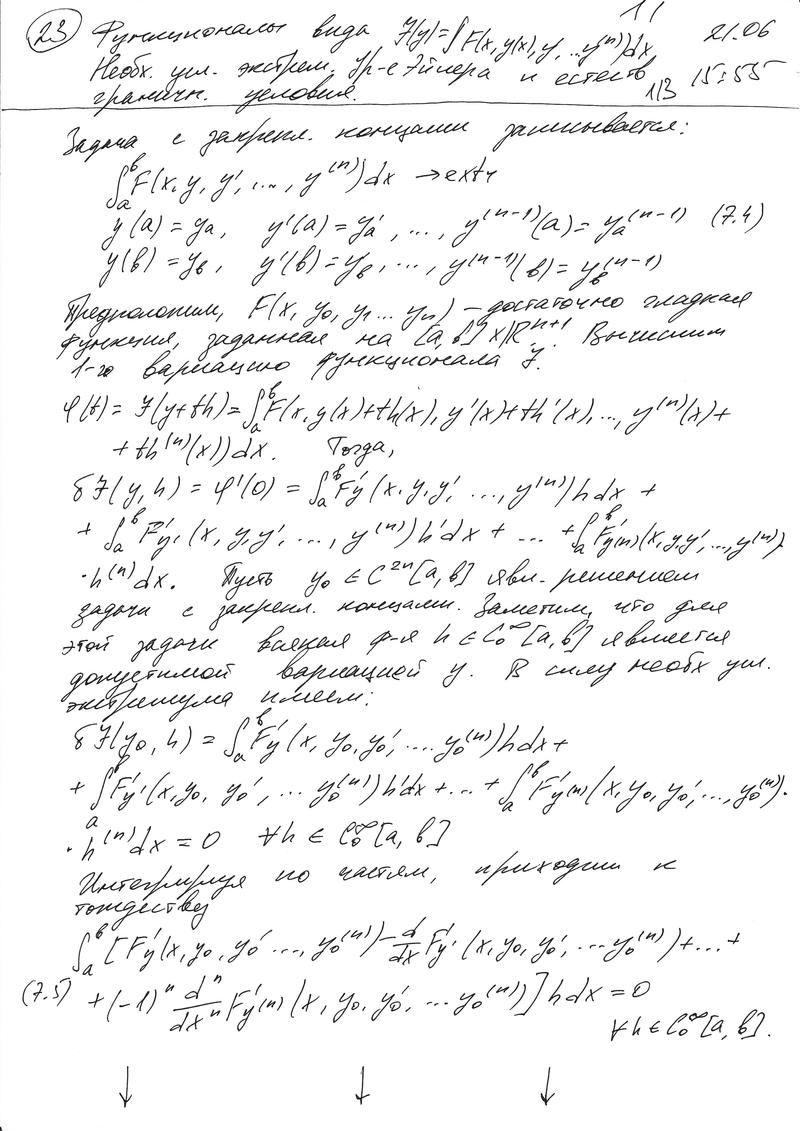 23 Функционалы вида J(y)=∫F(x,y(x),y',...y⁽ⁿ⁾)dx 21.06
Необх. усл. экстрем. Ур-е Эйлера и естеств. 1/3 15:55
граничн. условия.
Задача с закрепл. концами записывается:
∫ₐᵇF(x,y,y',...,y⁽ⁿ⁾)dx → extr
y(a)=yₐ, y'(a)=y'ₐ,..., y⁽ⁿ⁻¹⁾(a)=yₐ⁽ⁿ⁻¹⁾ (7.4)
y(в)=y_в, y'(в)=y_в,..., y⁽ⁿ⁻¹⁾(в)=y_в⁽ⁿ⁻¹⁾
Предположим, F(x,y₀,y₁...yₙ) – достаточно гладкая
функция, заданная на [a,в]×ℝⁿ⁺¹. Вычислим
1-ю вариацию функционала J.
φ(t)=J(y+th)=∫ₐᵇF(x,y(x)+th(x),y'(x)+th'(x),...,y⁽ⁿ⁾(x)+
+th⁽ⁿ⁾(x))dx. Тогда,
δJ(y,h)=φ'(0)=∫ₐᵇF'_y(x,y,y',...,y⁽ⁿ⁾)hdx+
+∫ₐᵇF'_y'(x,y,y',...,y⁽ⁿ⁾)h'dx+...+∫ₐᵇF'_y⁽ⁿ⁾(x,y,y',...,y⁽ⁿ⁾)·
·h⁽ⁿ⁾dx. Пусть y₀∈C²ⁿ[a,в] явл. решением
задачи с закрепл. концами. Заметим, что для
этой задачи всякая ф-я h∈C₀^∞[a,в] является
допустимой вариацией y. В силу необх усл.
экстремума имеем:
δJ(y₀,h)=∫ₐᵇF'_y(x,y₀,y₀',...,y₀⁽ⁿ⁾)hdx+
+∫ₐᵇF'_y'(x,y₀,y₀',...y₀⁽ⁿ⁾)h'dx+...+∫ₐᵇF'_y⁽ⁿ⁾(x,y₀,y₀',...,y₀⁽ⁿ⁾)·
·h⁽ⁿ⁾dx=0 ∀h∈C₀^∞[a,в]
Интегрируя по частям, приходим к
тождеству
∫ₐᵇ[F'_y(x,y₀,y₀'...,y₀⁽ⁿ⁾)-d/dx F'_y'(x,y₀,y₀',...y₀⁽ⁿ⁾)+...+
(7.5) +(-1)ⁿ dⁿ/dxⁿ F'_y⁽ⁿ⁾(x,y₀,y₀',...y₀⁽ⁿ⁾)]hdx=0
∀h∈C₀^∞[a,в].
↓ ↓ ↓